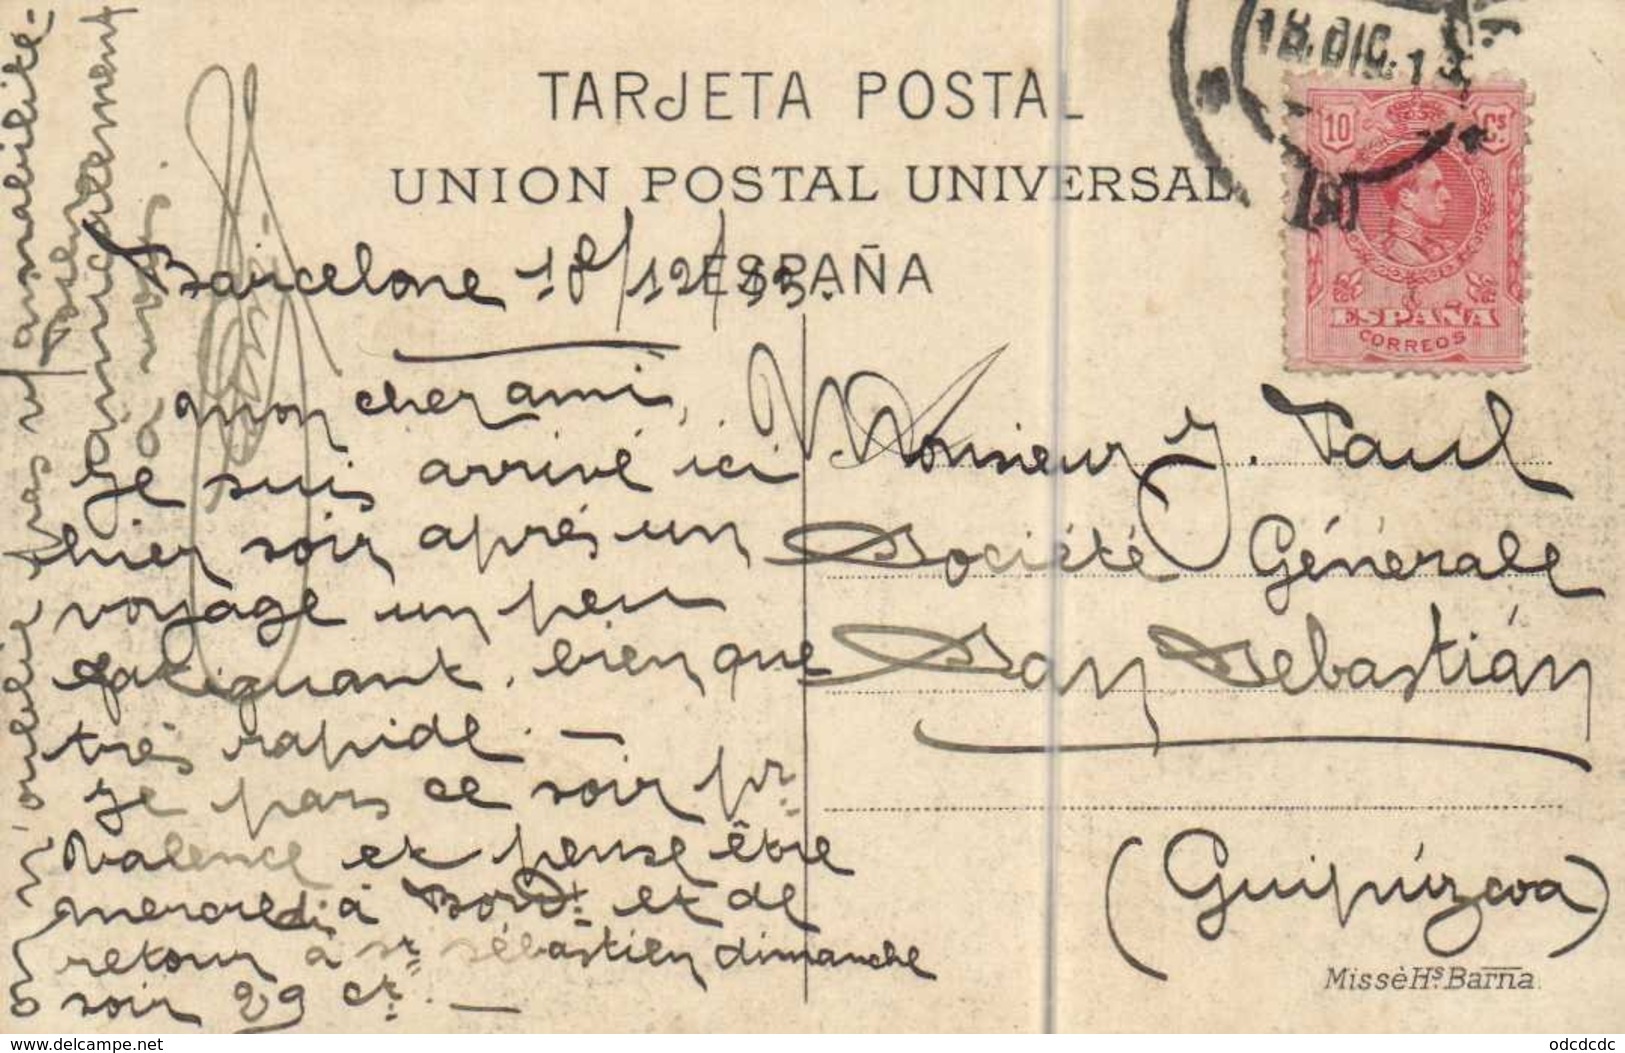 18.DIC.13
TARJETA POSTAL
UNION POSTAL UNIVERSAL
ESPAÑA
10 Cs
ESPAÑA
CORREOS
Barcelone 18/12/13.
mon cher ami,
Je suis arrivé ici
hier soir après un
voyage un peu
fatiguant, bien que
très rapide. —
Je pars ce soir pr
Valence et pense être
mercredi à Bordx et de
retour à St Sébastien dimanche
soir 29 ct. —
n'oublie pas v/ amabilité
bien amicalement
à vous.
Monsieur J. Paul
Société Générale
San Sebastián
(Guipúzcoa)
Missè Hs. Barna.
www.delcampe.net
odcdcdc